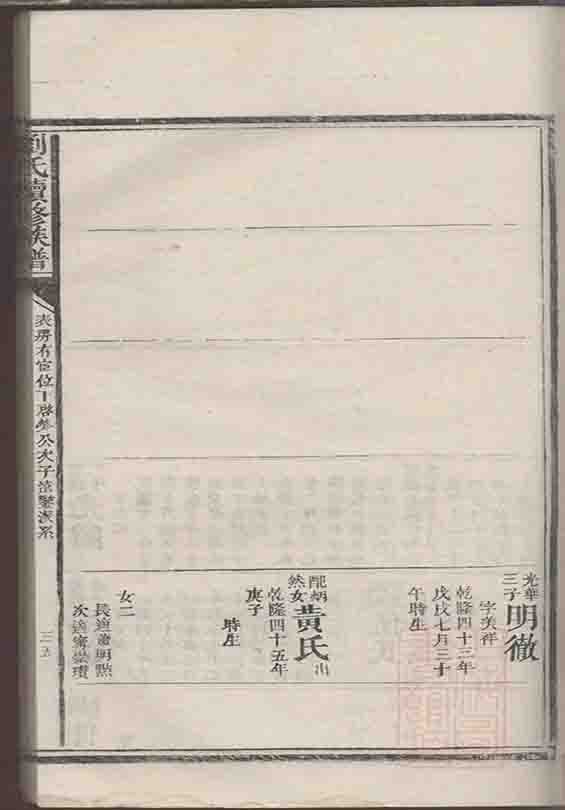 光華
三子
明徹
字漢祥
乾隆四十三年
戊戌七月三十
午時生
配炳
然女
黄氏
出
乾隆四十五年
庚子
時生
女二
長適蕭明㸃
次適甯崇瓚
劉氏續修族譜
表房有官位下啓
公次子
派系
三五